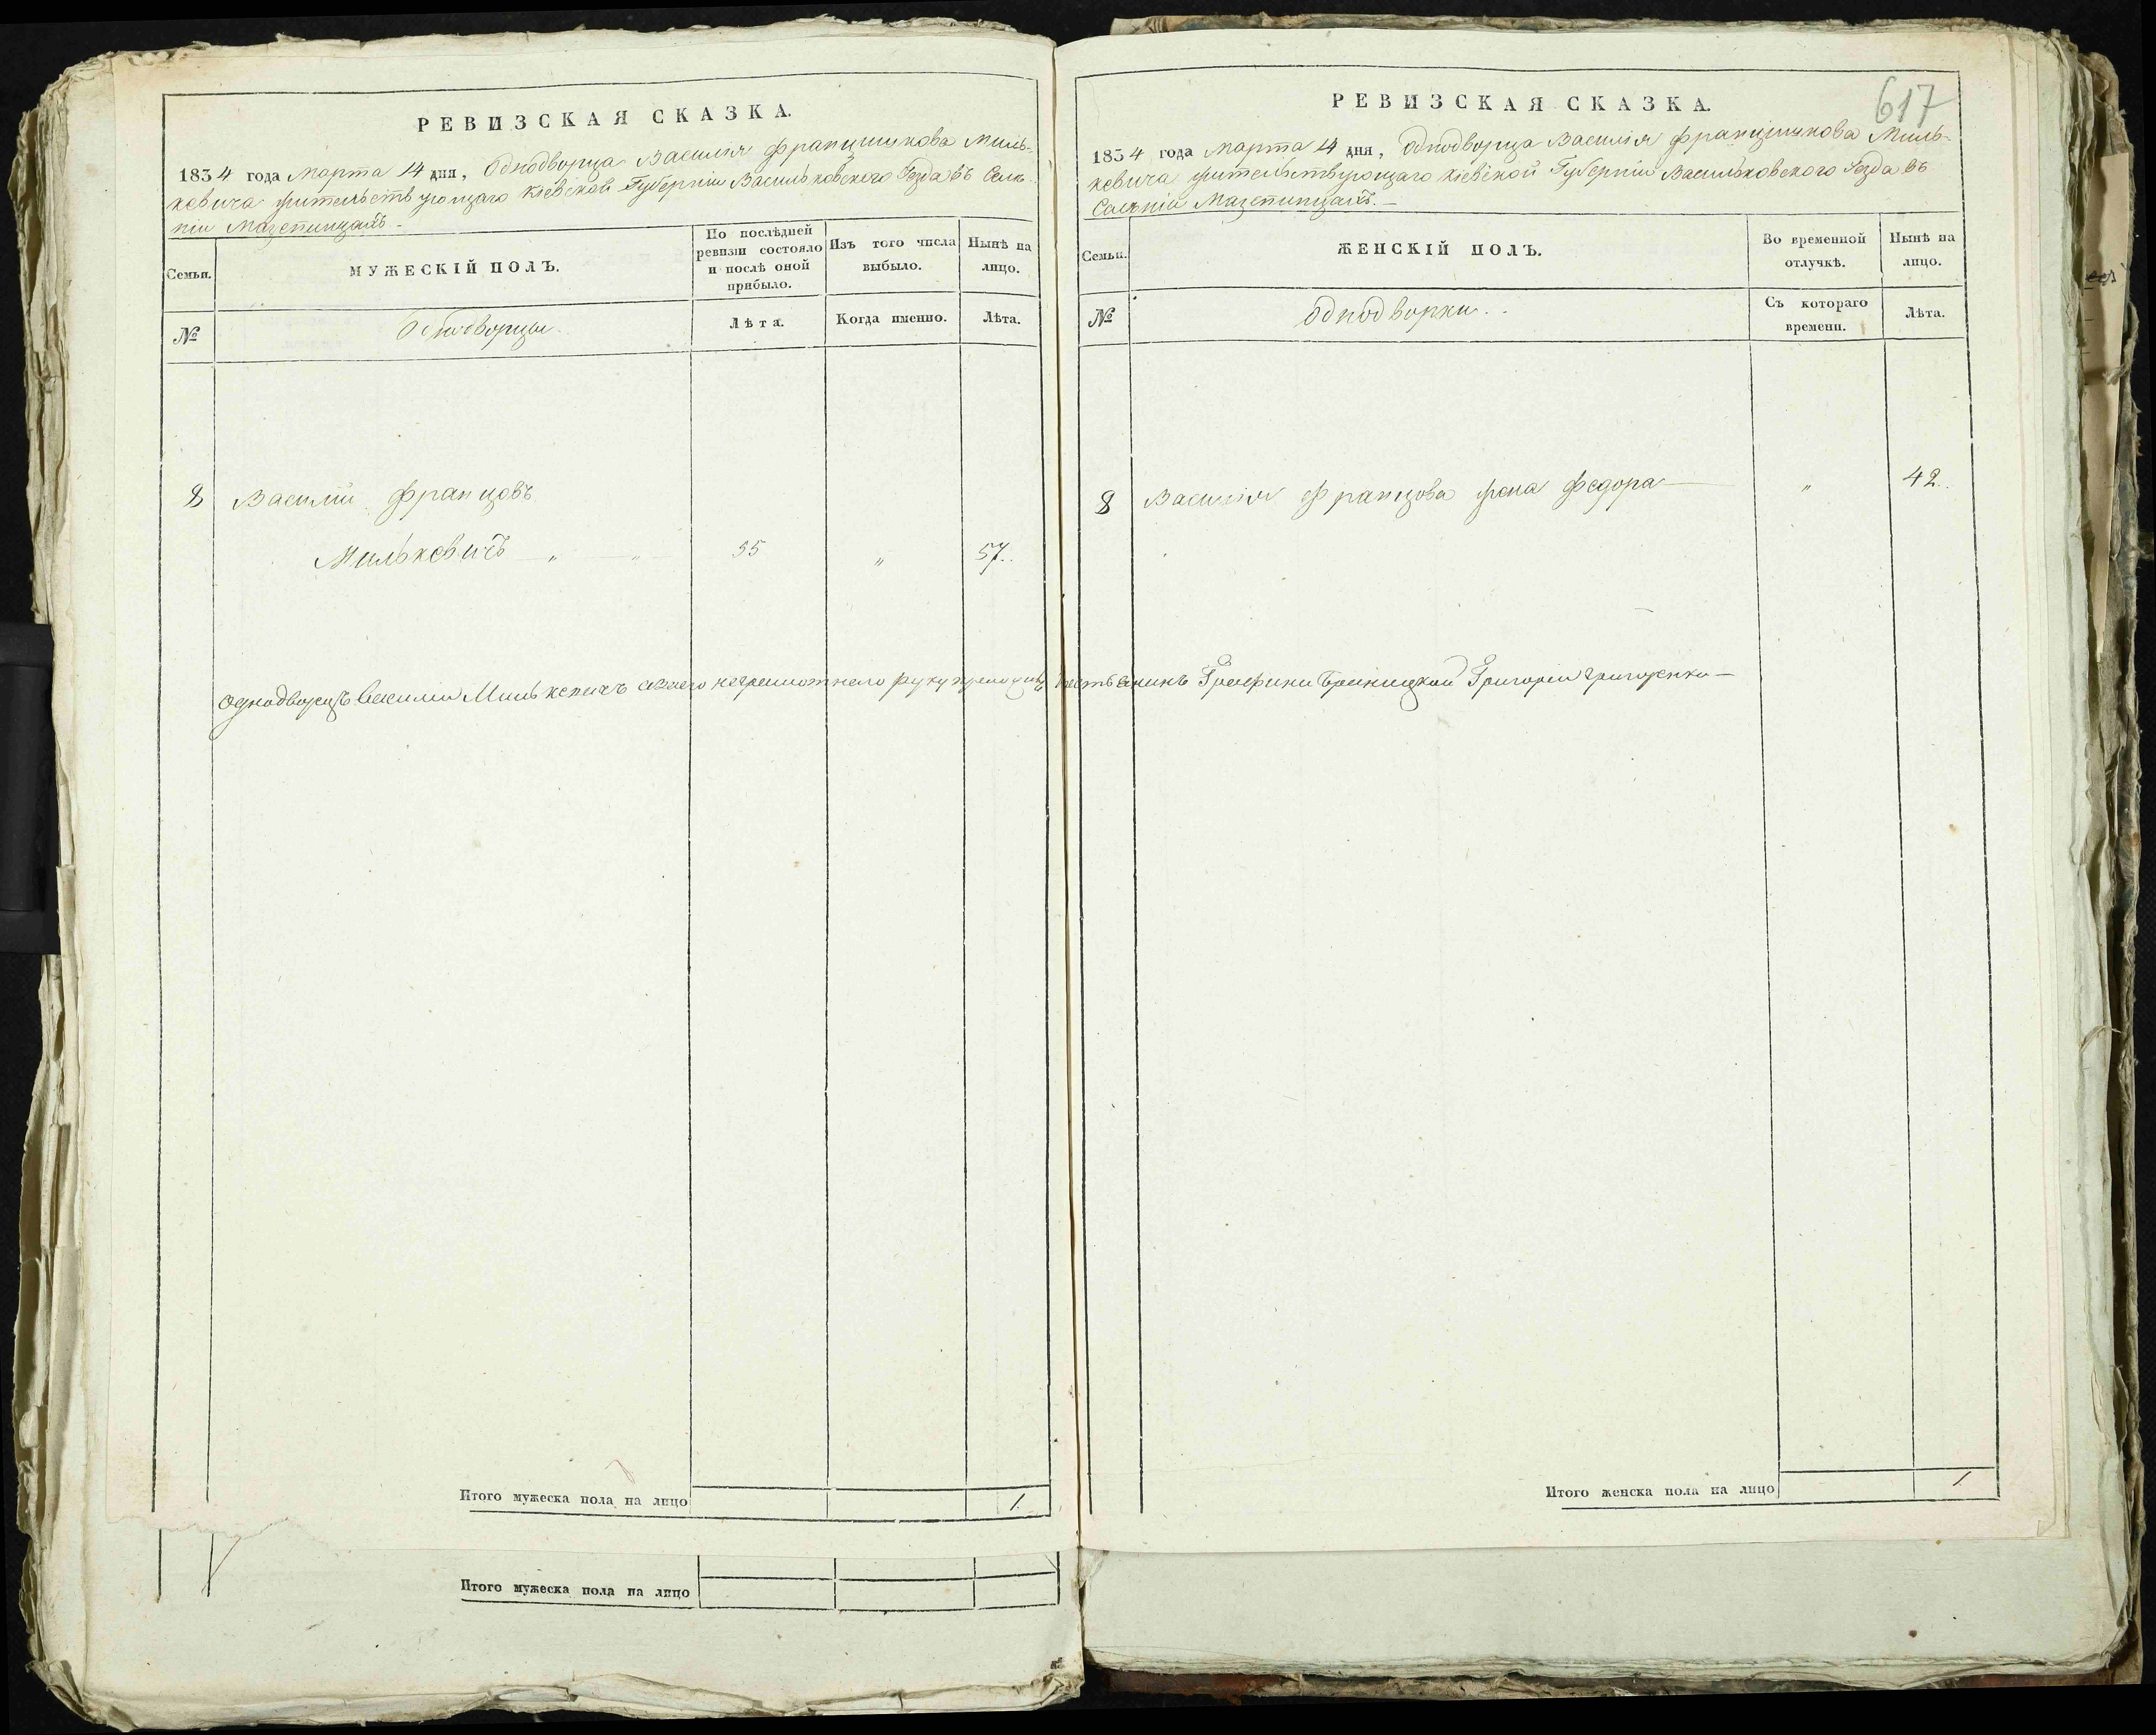 РЕВИЗСКАЯ СКАЗКА.
1834 года Марта 14 дня, Однодворца Василія Францишкова Миль-
кевича жительствующаго Кіевской Губерніи Васильковскаго Уезда въ Селе-
ніи Мазепинцахъ. -
Семьи.
МУЖЕСКІЙ ПОЛЪ.
По послѣдней ревизіи состояло и послѣ оной прибыло.
Изъ того числа выбыло.
Нынѣ на лицо.
№
Однодворцы.
Лѣта.
Когда именно.
Лѣта.
8 Василій Францовъ
Милькевичъ „ „ 55 „ 57.
Однодворецъ Василий Милькевичъ
Итого мужеска пола на лицо 1.
Итого мужеска пола на лицо
617
РЕВИЗСКАЯ СКАЗКА.
1834 года Марта 14 дня, Однодворца Василія Францишкова Миль-
кевича жительствующаго Кіевской Губерніи Васильковского Уезда въ
Селеніи Мазепинцахъ. -
Семьи.
ЖЕНСКІЙ ПОЛЪ.
Во временной отлучкѣ.
Нынѣ на лицо.
№
Однодворки.
Съ котораго времени.
Лѣта.
8 Василія Францова жена Федора „ 42.
Графини Браницкой Григорий
Итого женска пола на лицо 1.